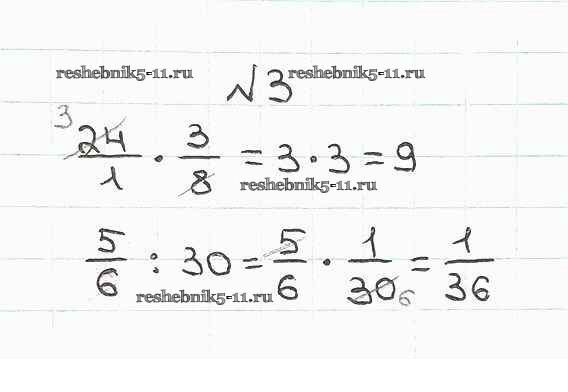 reshebnik5-11.ru №3 reshebnik5-11.ru
3
24/1 · 3/8 = 3 · 3 = 9
reshebnik5-11.ru
5/6 : 30 = 5/6 · 1/30 = 1/36
6
reshebnik5-11.ru